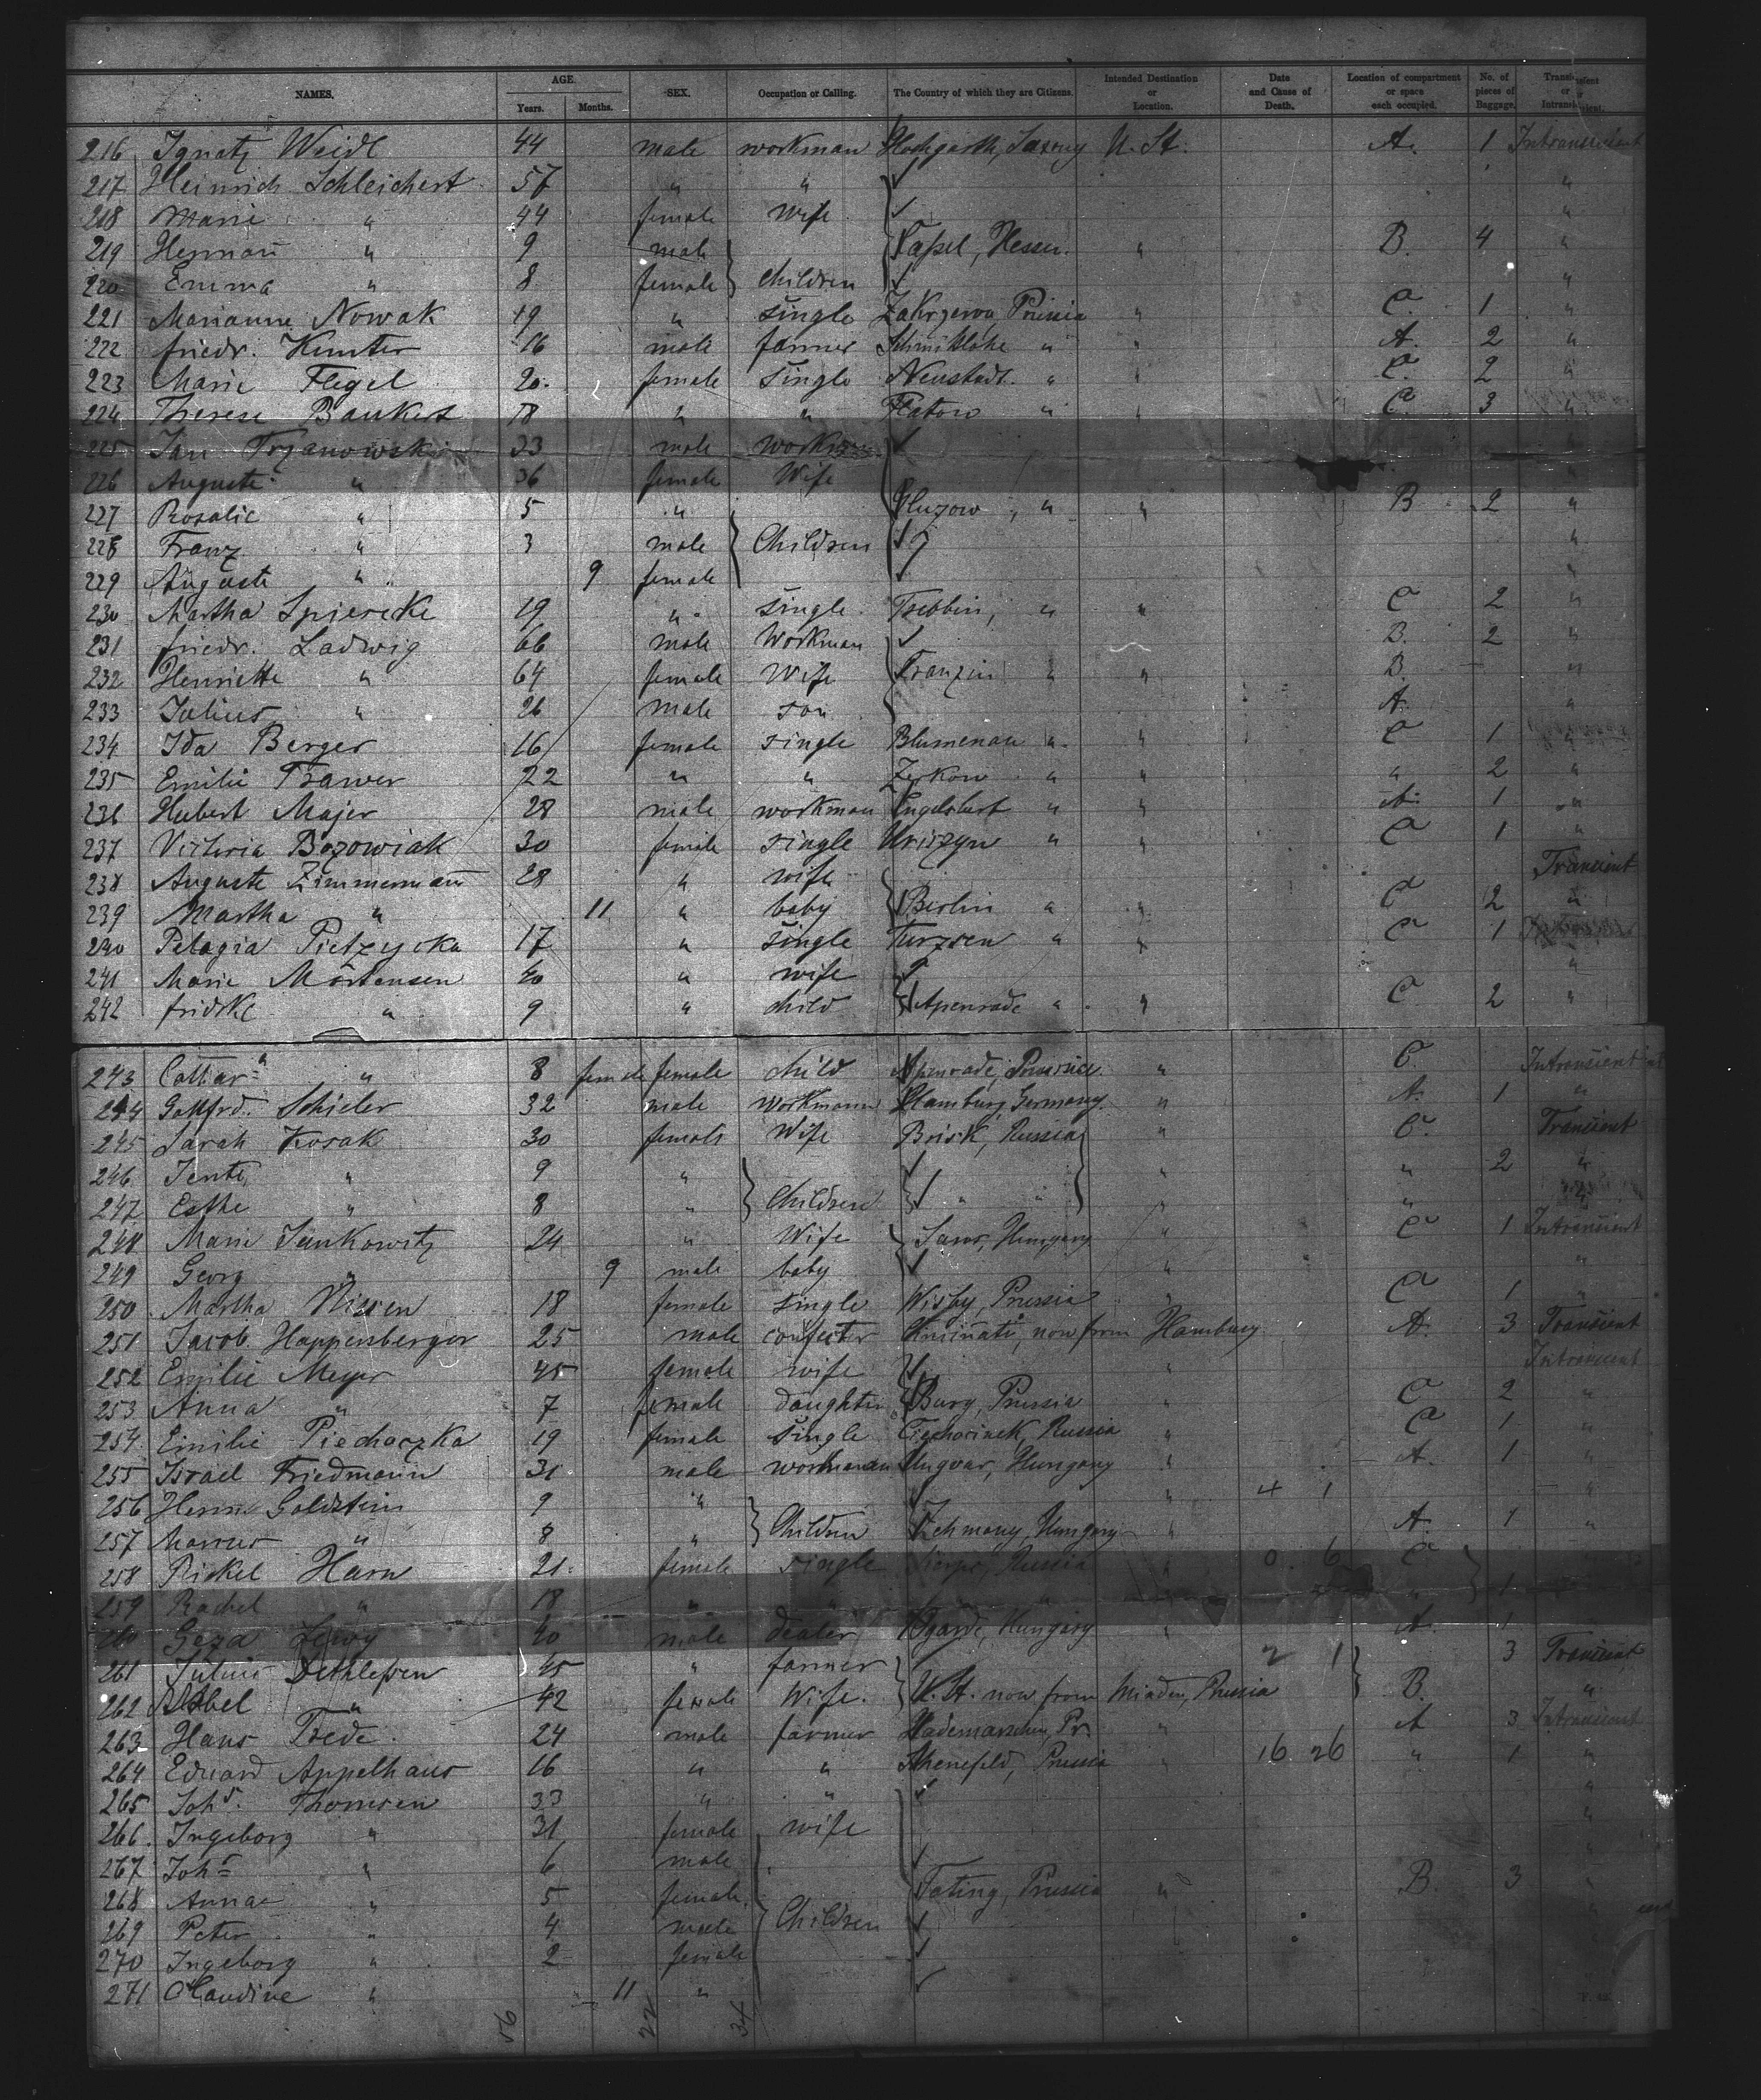 NAMES. AGE. Years. Months. SEX. Occupation or Calling. The Country of which they are Citizens. Intended Destination or Location. Date and Cause of Death. Location of compartment or space each occupied. No. of pieces of Baggage. Transient or Intransient.
216 Ignatz Weidl 44 male workman U. St. A. 1 Intransient
217 Heinrich Schleichert 57 " " "
218 Marie " 44 female Wife "
219 Herman " 9 male Kassel, Hessen. " B. 4 "
220 Emma " 8 female Children "
221 Marianne Nowak 19 " single Zakrzewo, Prussia " C. 1 "
222 friedr. 16 male farmer " " A. 2 "
223 Marie Flegel 20. female single Neustadt. " " C. 2 "
224 Therese Bankert 18 " " Flatow " " C. 3 "
225 Jan 33 male workman
226 Auguste " 36 female Wife "
227 Rosalie " 5 " " " B 2 "
228 Franz " 3 male Children "
229 Auguste " 9 female "
230 Martha Spierecke 19 " single. Trebbin, " " C 2 "
231 friedr. Ladwig 66 male Workman B. 2 "
232 Henriette " 64 female Wife Franzin " " B. "
233 Julius " 26 male son A. "
234 Ida Berger 16 female single Blumenau " " C 1 "
235 Emilie Trawer 22 " " Zerkow " " " 2 "
236 Hubert Majer 28 male workman " " A. 1 "
237 Victoria Bozowiak 30 female single " " C 1 "
238 Auguste Zimmermann 28 " wife Transient
239 Martha " 11 " baby Berlin " " C 2 "
240 Pelagia Pietzycka 17 " single " " C 1
241 Marie Mortensen 40 " wife "
242 fridke " 9 " child Apenrade " " C 2 "
243 " 8 female female child Apenrade, Prussia " C Intransient
244 Gottfrd. Schieler 32 male Workmann Hamburg, Germany. " A. 1 "
245 Sarah Kosak 30 female Wife Brisk, Russia " C. Transient
246 Jente " 9 " " " 2 "
247 Esthe " 8 " Children " " " "
248 Marie Jankowitz 24 " Wife Hungary " C 1 Intransient
249 Georg " 9 male baby " "
250 Martha Nissen 18 female single Wisby, Prussia " C 1 "
251 Jacob Happensberger 25 male now from Hamburg A. 3 Transient
252 Emilie Meyer 45 female wife " Intransient
253 Anna " 7 female daughter Burg, Prussia " C 2 "
254 Emilie Piechoczka 19 female single Ciechocinek, Russia " C 1 "
255 Israel Friedmann 31 male workman Ungvar, Hungary " A. 1 "
256 Herm. Goldstein 9 " " 4 1 "
257 Marcus " 8 " Children Hungary " A. 1 "
258 Rickel Harn 21. female single Russia " 0. 6 C
259 Rachel " 18 " " " 1
260 Geza Lewy 40 male dealer Hungary " A. 1
261 Julius Dethlefsen 45 " farmer 2 1 3 Transient
262 Abel " 42 female Wife. U. St. now from Minden, Prussia B. "
263 Hans Trede. 24 male farmer Hademarschen, Pr. " A 3 Intransient
264 Eduard Appelhans 16 " " Prussia " 16 26 " 1 "
265 Johs. Thomsen 33 " " "
266. Ingeborg " 31 female wife "
267 Johs " 6 male "
268 Anna " 5 female Tating, Prussia " B. 3 "
269 Peter " 4 male Children
270 Ingeborg " 2 female
271 Claudine " 11 "
56 22 34